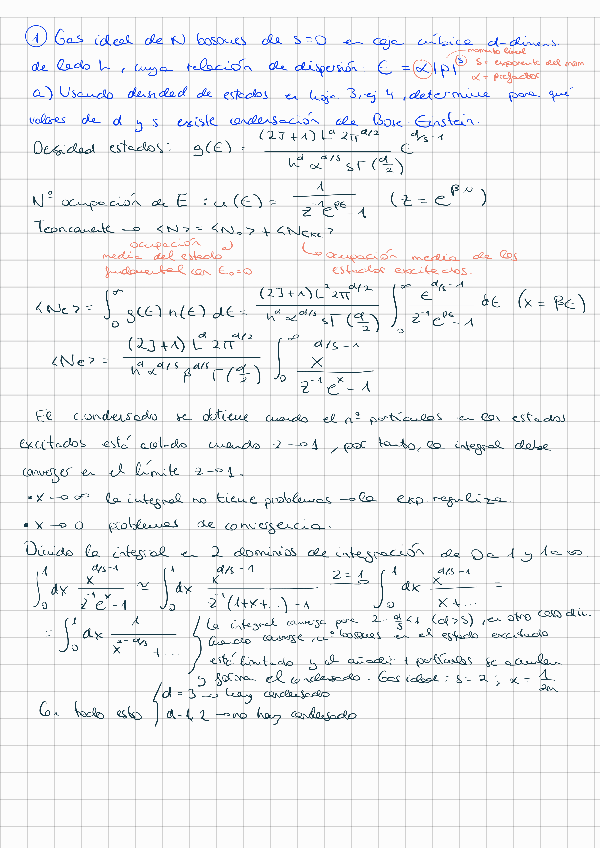 ① Gas ideal de N bosones de s=0 en caja cúbica d-dimens.
de lado L, cuya relación de dispersión ε = α|p|^s
momento lineal
s = exponente del mom
α = prefactor
a) Usando densidad de estados en hoja 3, ej 4, determine para qué
valores de d y s existe condensación de Bose Einstein.
Densidad estados: g(ε) = (2J+1) L^d 2π^{d/2} / (h^d α^{d/s} s Γ(d/2)) ε^{d/s-1}
Nº ocupación de E : n(ε) = 1 / (z^{-1} e^{βε} - 1) (z = e^{βμ})
<N> = <N_0> + <N_exc>
ocupación media del estado fundamental con ε_0=0
ocupación media de los estados excitados.
<N_e> = ∫_0^∞ g(ε) n(ε) dε = (2J+1) L^d 2π^{d/2} / (h^d α^{d/s} s Γ(d/2)) ∫_0^∞ ε^{d/s-1} / (z^{-1} e^{βε} - 1) dε (x = βε)
<N_e> = (2J+1) L^d 2π^{d/2} / (h^d α^{d/s} β^{d/s} Γ(d/2)) ∫_0^∞ x^{d/s-1} / (z^{-1} e^x - 1)
El condensado se obtiene cuando el nº partículas en los estados
excitados está acotado cuando z→1, por tanto, la integral debe
converger en el límite z→1.
• x→∞: la integral no tiene problemas → la exp regulariza
• x→0 problemas de convergencia.
Divido la integral en 2 dominios de integración de 0 a 1 y 1 a ∞.
∫_0^1 dx x^{d/s-1} / (z^{-1} e^x - 1) ≃ ∫_0^1 dx x^{d/s-1} / (z^{-1}(1+x+...) - 1) z=1 = ∫_0^1 dx x^{d/s-1} / (x+...) =
= ∫_0^1 dx 1 / (x^{2-d/s} + ...)
La integral converge para 2-d/s<1 (d>s), en otro caso div.
Cuando converge, nº bosones en el estado excitado
está limitado y al añadir + partículas se acumulan
y forma el condensado. Gas ideal: s=2; α = 1/2m
Con todo esto
d=3 → hay condensado
d=1,2 → no hay condensado